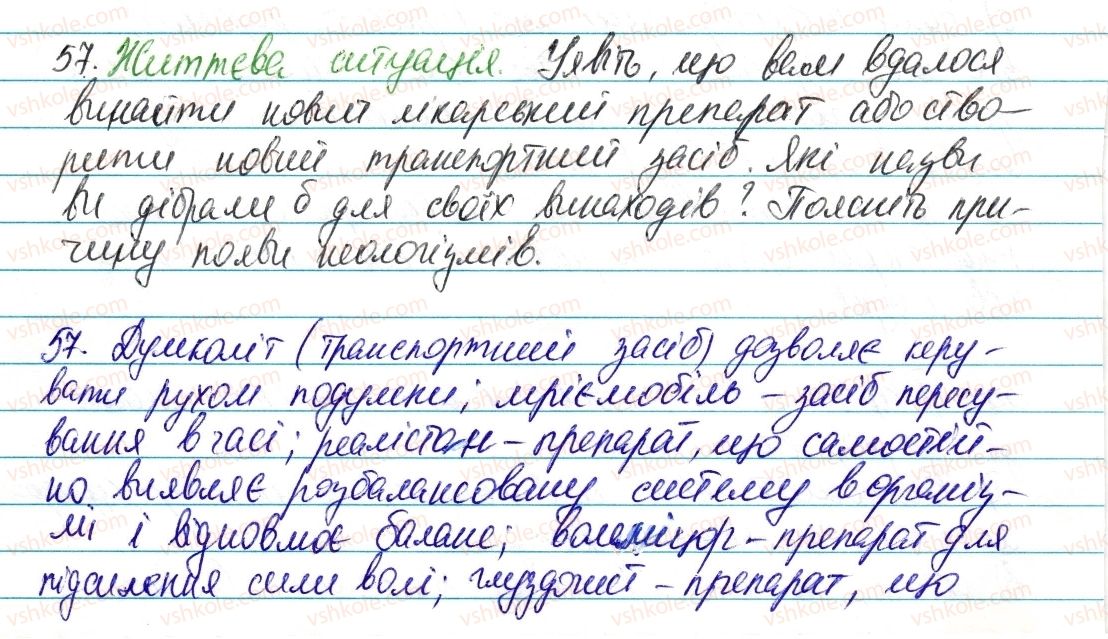 57. Життєва ситуація. Уявіть, що вам вдалося
винайти новий лікарський препарат або ство-
рити новий транспортний засіб. Які назви
ви дібрали б для своїх винаходів? Поясніть при-
чину появи неологізмів.
57. Думколіт (транспортний засіб) дозволяє керу-
вати рухом подумки; мріємобіль – засіб пересу-
вання в часі; реалістан – препарат, що самостій-
но виявляє розбалансовану систему в організ-
мі і відновлює баланс; – препарат для
підсилення сили волі; глуздочист – препарат, що